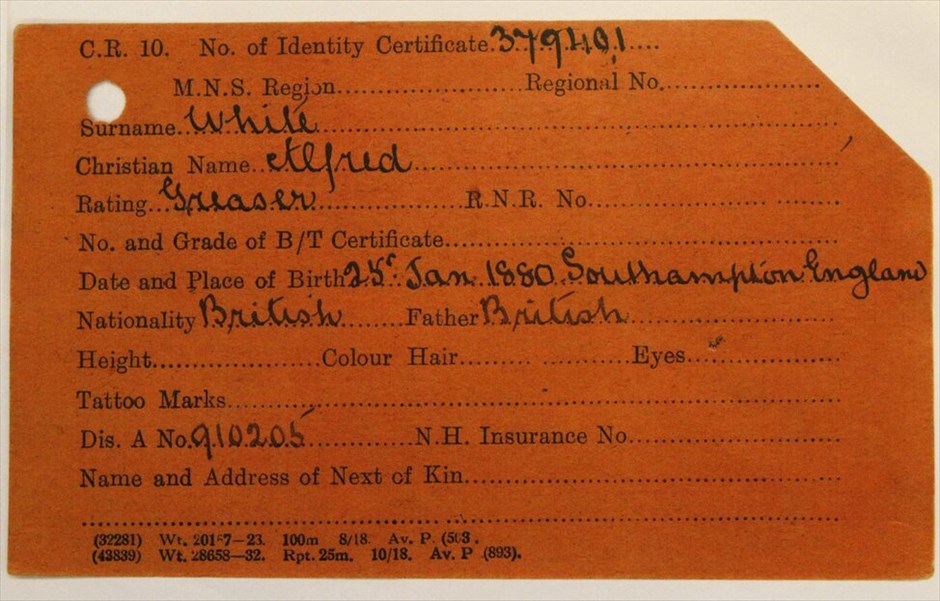 C.R. 10. No. of Identity Certificate 379401
M.N.S. Region Regional No.
Surname White
Christian Name Alfred
Rating Greaser R.N.R. No.
No. and Grade of B/T Certificate
Date and Place of Birth 25 Jan 1880 Southampton England
Nationality British Father British
Height Colour Hair Eyes
Tattoo Marks
Dis. A No. 910205 N.H. Insurance No.
Name and Address of Next of Kin
(32281) Wt. 20187—23. 100m 8/18. Av. P. (503.
(43839) Wt. 28658—32. Rpt. 25m. 10/18. Av. P (893).